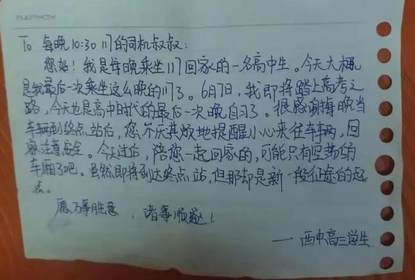 To 每晚10:30 117的司机叔叔:
您好!我是每晚乘坐117回家的一名高中生。今天大概
是我最后一次乘坐这么晚的117了。6月7日,我即将踏上高考之
路,今天也是高中时代的最后一次晚自习了。很感谢每晚当
车辆到终点站后,您不厌其烦地提醒小心来往车辆,回
家注意安全。今天过后,陪您一起回家的,可能只有空荡的
车厢了吧。虽然即将到达终点站,但那却是新一段征途的起
点。
愿万事胜意,诸事顺遂!
——西中高三学生